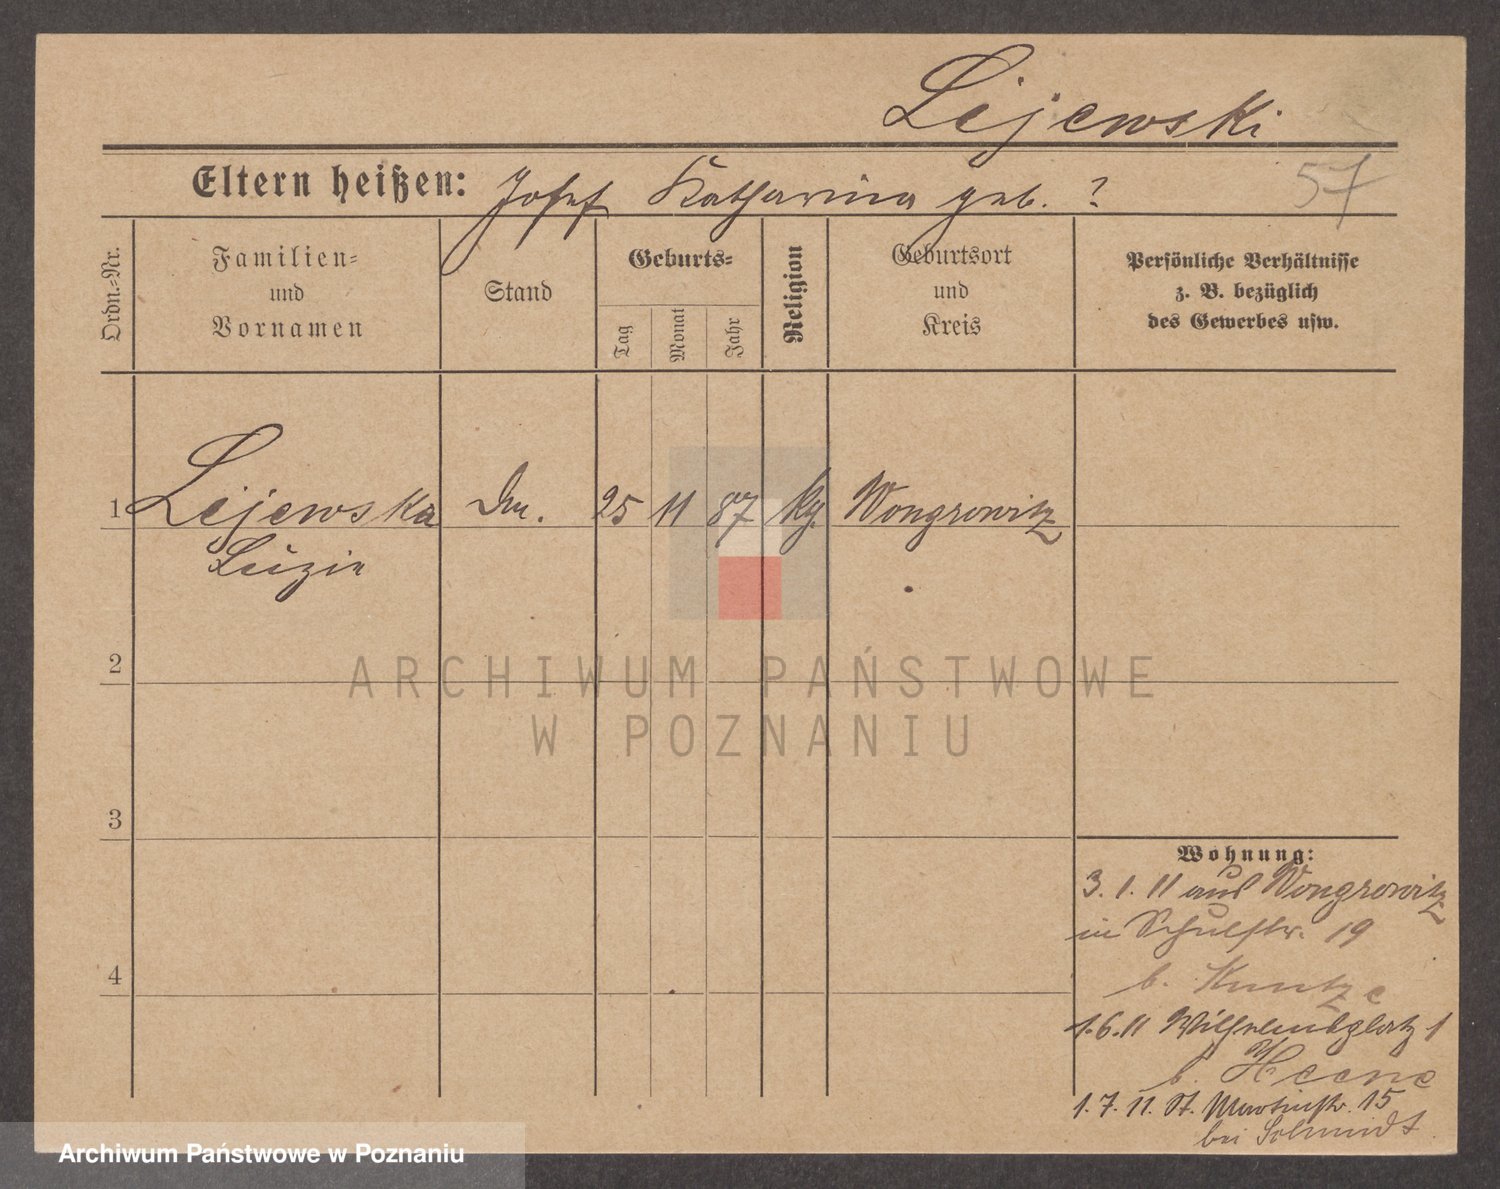 Lejewski
Eltern heißen: Josef Katharina geb. ?
57
Ordn.-Nr.
Familien-
und
Vornamen
Stand
Geburts-
Tag
Monat
Jahr
Religion
Geburtsort
und
Kreis
Persönliche Verhältnisse
z. B. bezüglich
des Gewerbes usw.
1 Lejewska 25 11 87 Wongrowitz
Luzie
2
3
4
Wohnung:
3. 1. 11 aus Wongrowitz
in Schulstr. 19
b. Kuntze
1.6.11 Wilhelmsplatz 1
b.
1. 7. 11. St. Martinstr. 15
bei Schmidt
ARCHIWUM PAŃSTWOWE
W POZNANIU
Archiwum Państwowe w Poznaniu